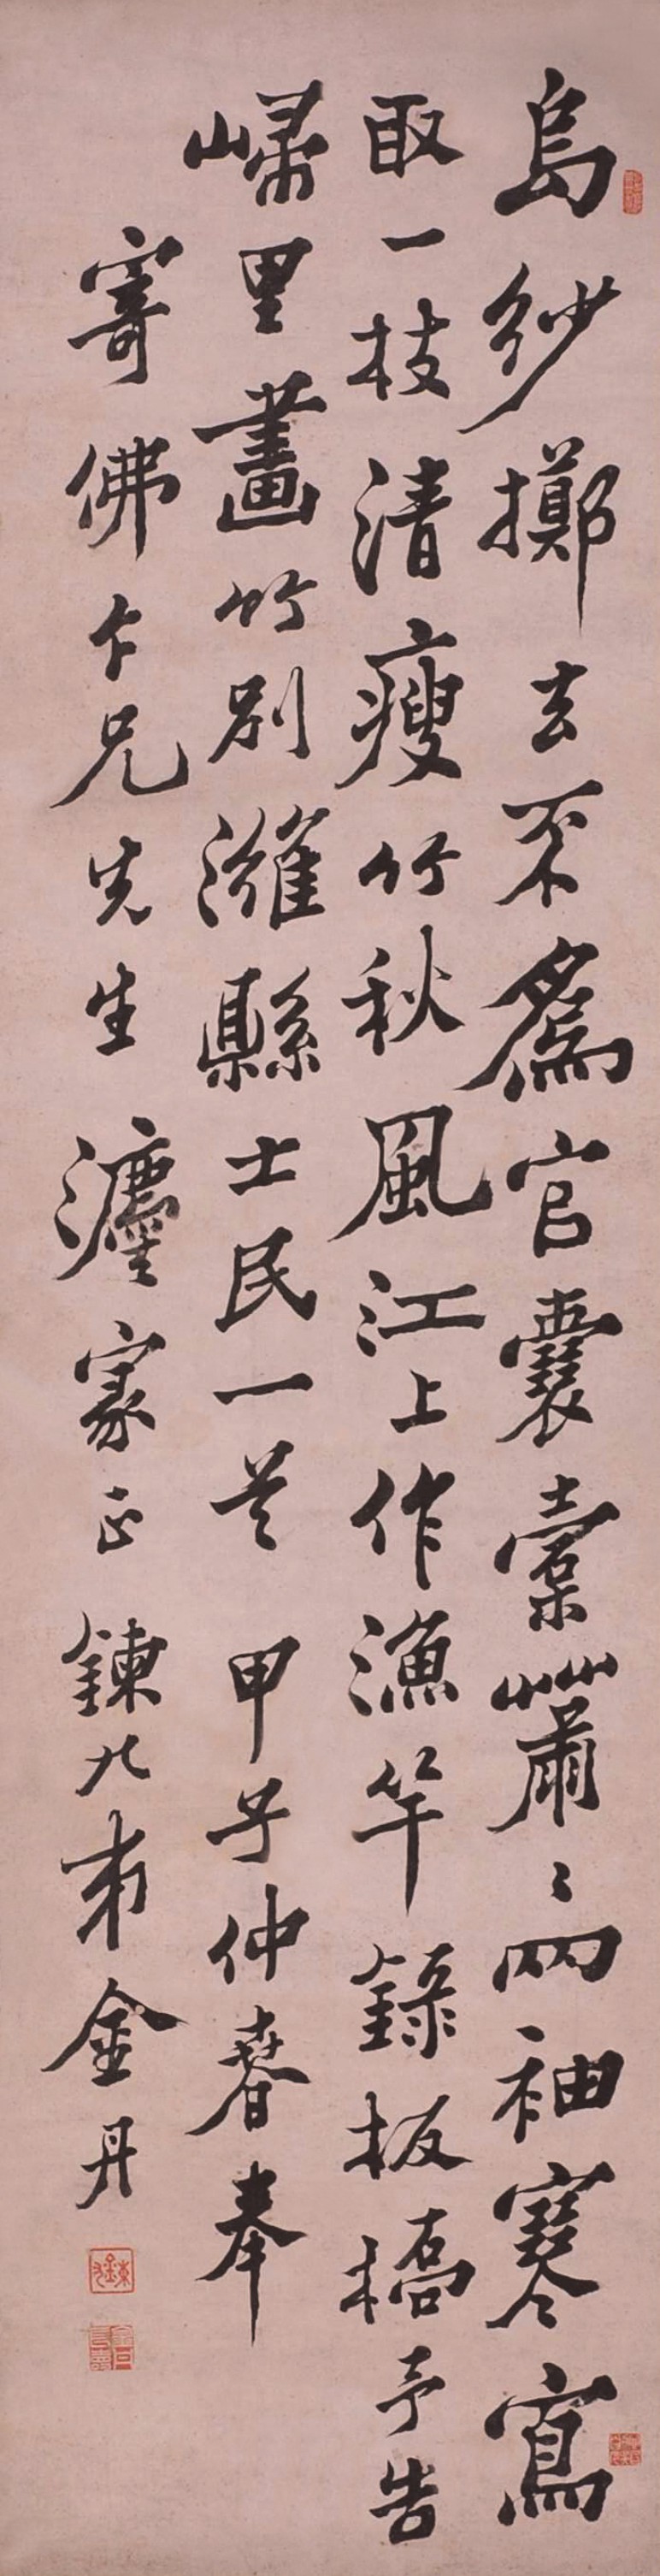 烏紗擲去不為官囊橐蕭〻兩袖寒寫
取一枝清瘦竹秋風江上作漁竿錄板橋予告
歸里畫竹別濰縣士民一首 甲子仲春奉
寄佛乍兄先生 瀍家正 鍊九弟金丹